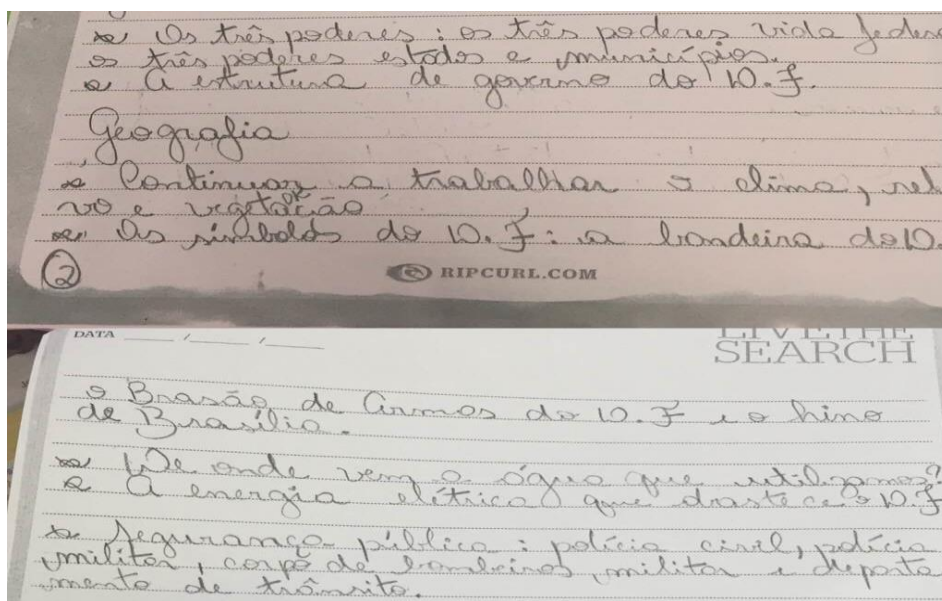 Os três poderes: os três poderes vida federa
os três poderes estados e municípios.
A estrutura de governo do D.F.
Geografia
Continuar a trabalhar o clima, rel
vo e vegetação OK
Os símbolos do D.F: a bandeira do D.
2
RIPCURL.COM
DATA ___/___/___
LIVE THE
SEARCH
o Brasão de Armas do D.F e o hino
de Brasília.
De onde vem a água que utilizamos?
A energia elétrica que abastece o D.F
Segurança pública: polícia civil, polícia
militar, corpo de bombeiros militar e departa
mento de trânsito.